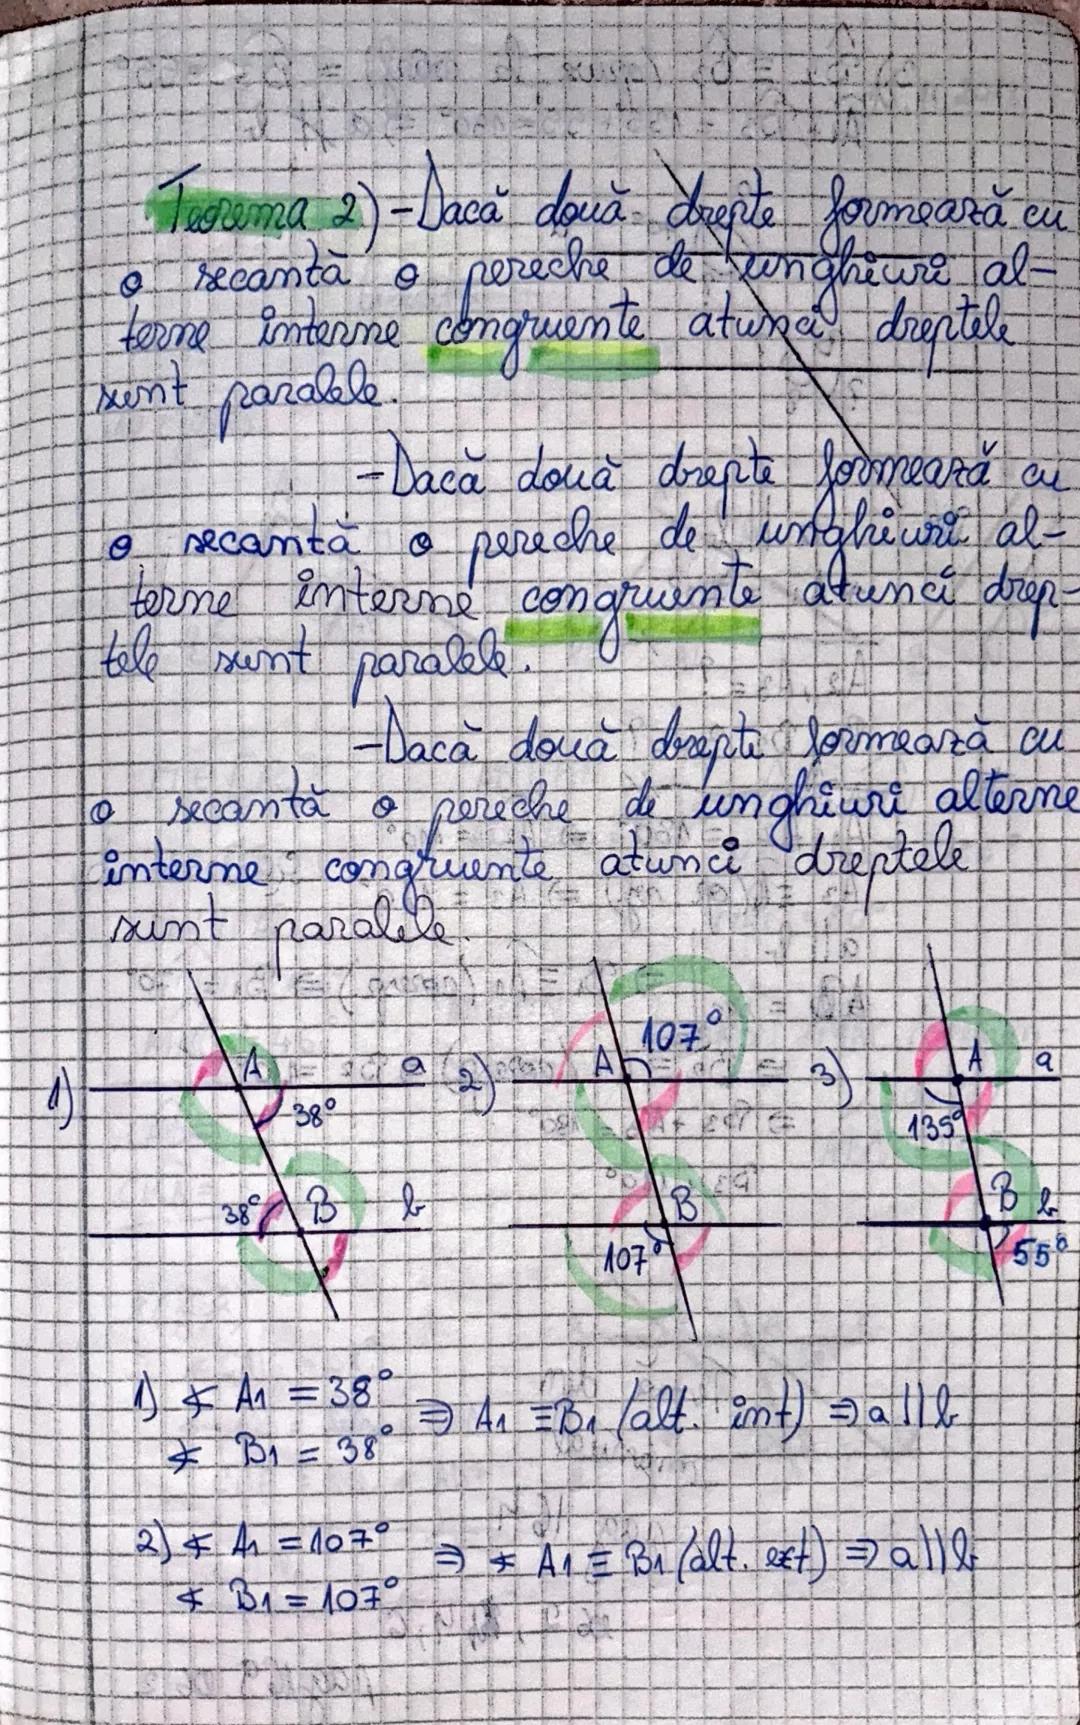 Teorema 2) - Dacă două drepte formează cu
o secantă o pereche de unghiuri al-
terne interne congruente atunci dreptele
sunt paralele.
- Dacă două drepte formează cu
o secantă o pereche de unghiuri al-
terne interne congruente atunci drep-
tele sunt paralele.
- Dacă două drepte formează cu
o secantă o pereche de unghiuri alterne
interne congruente atunci dreptele
sunt paralele.
1) A a 38° 38° B b
2) A 107° B 107°
3) A a 135° B b 55°
1) ∢ A1 = 38°
∢ B1 = 38° ⇒ A1 ≡ B1 (alt. int) ⇒ a || b
2) ∢ A1 = 107°
∢ B1 = 107° ⇒ ∢ A1 ≡ B1 (alt. ext) ⇒ a || b